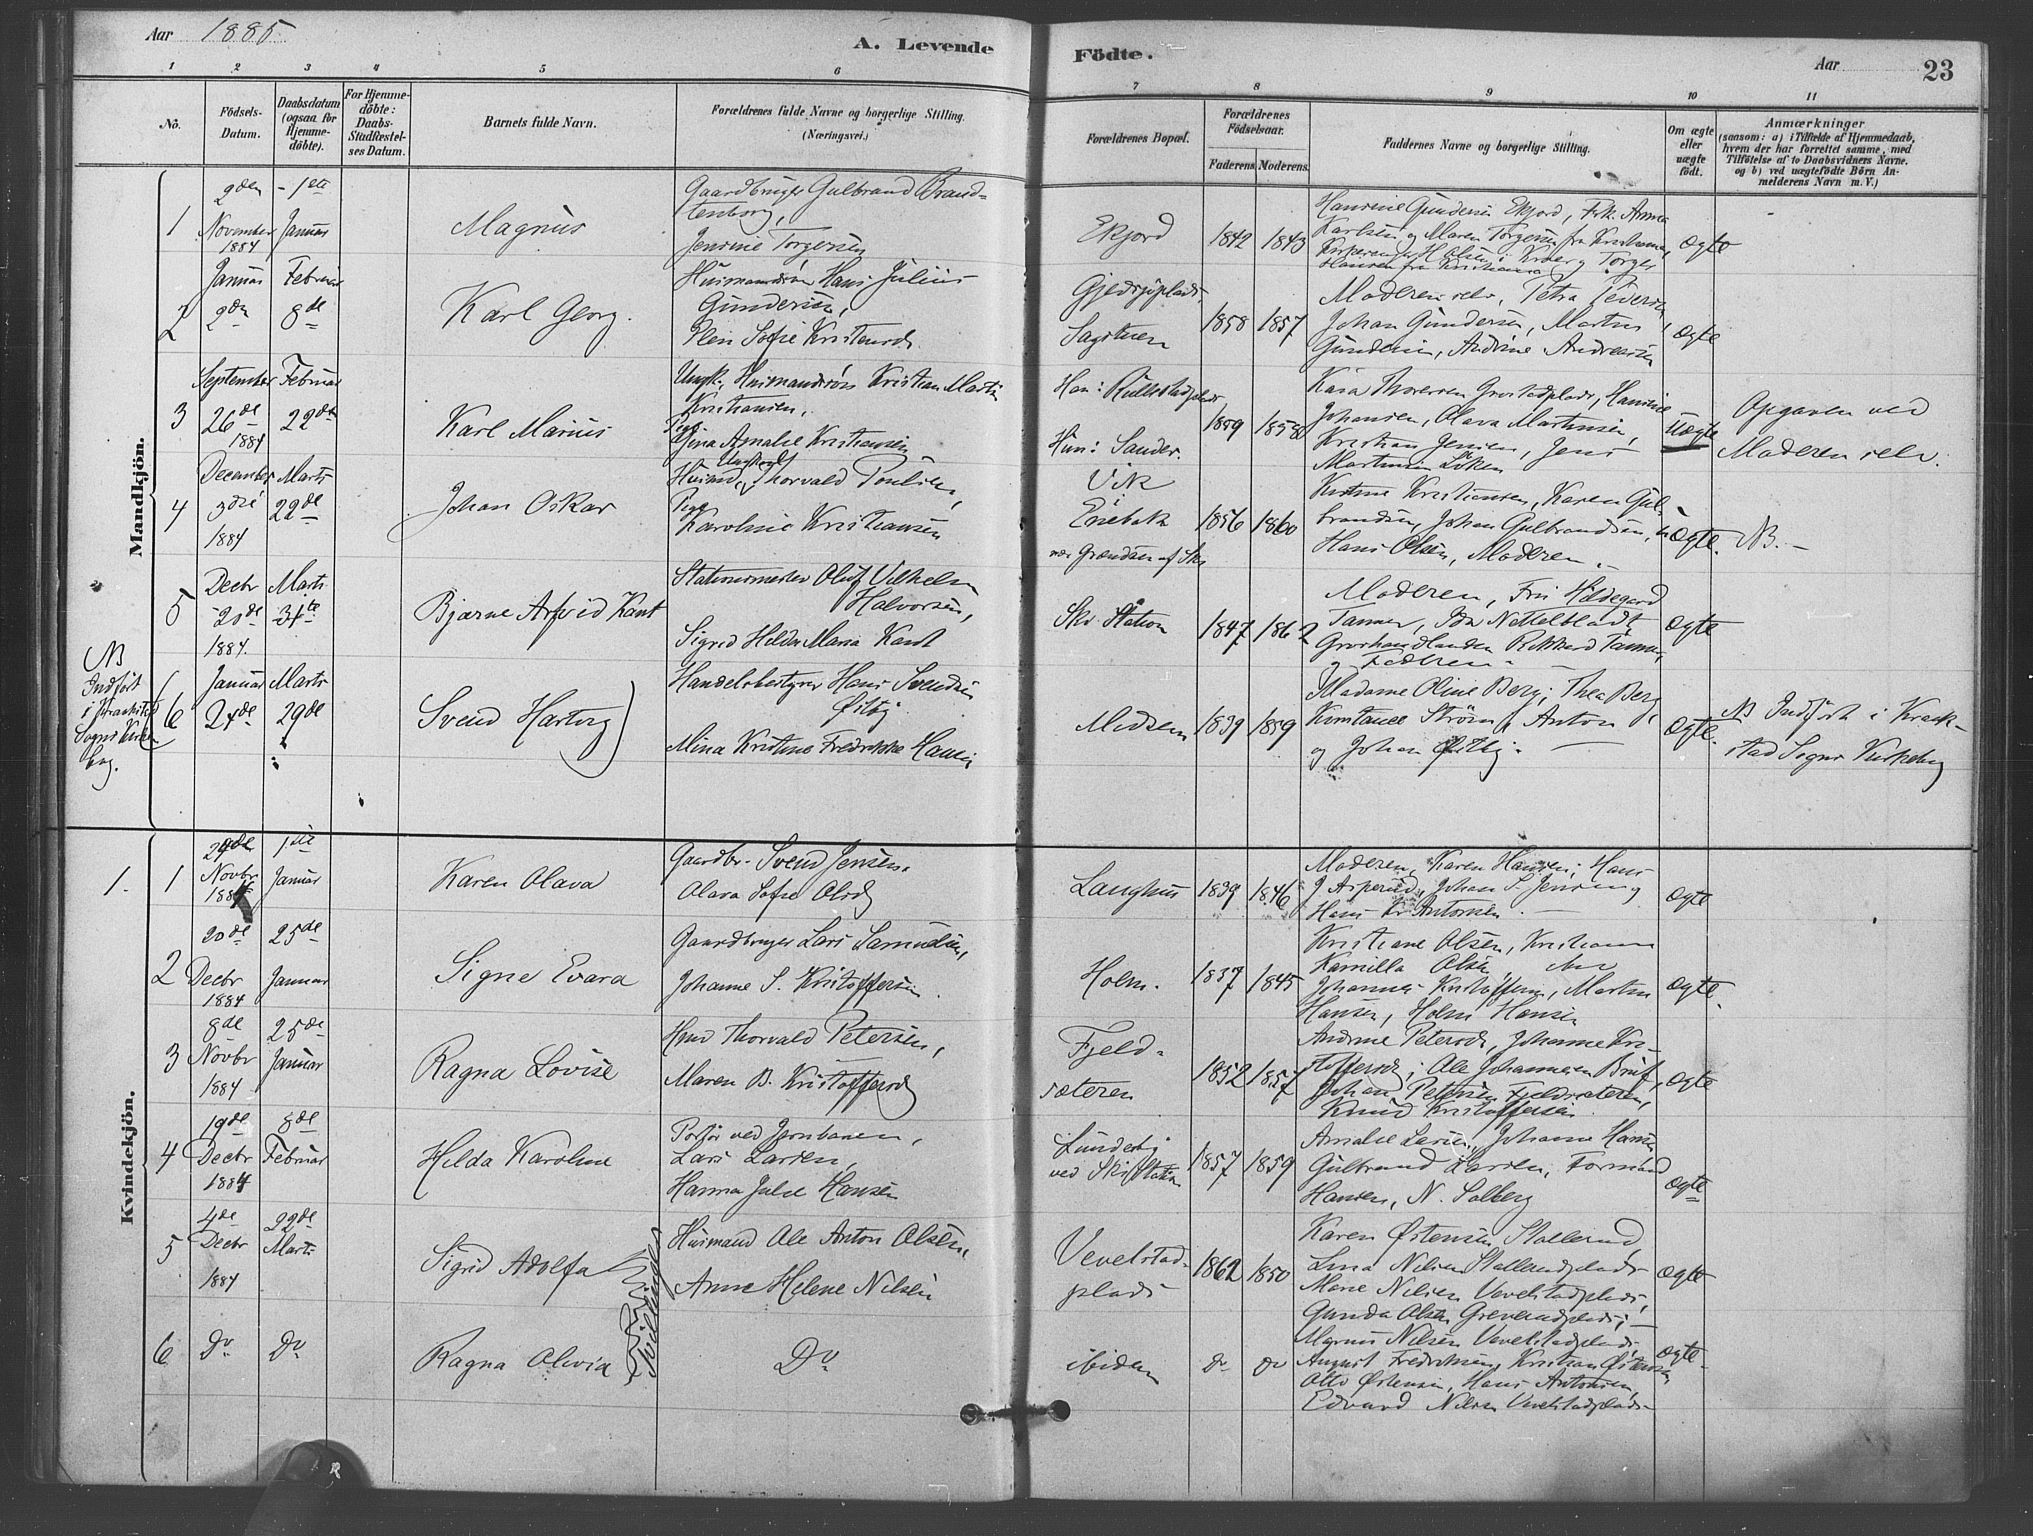 Aar 1885
A. Levende
Födte.
Aar
23
1 2 3 4 5 6 7 8 9 10 11
No.
Födsels-
Datum.
Daabsdatum
(ogsaa for
Hjemme-
döbte).
For Hjemme-
döbte:
Daabs-
Stadfæstel-
ses Datum.
Barnets fulde Navn.
Forældrenes fulde Navne og borgerlige Stilling.
(Næringsvei.)
Forældrenes Bopæl.
Forældrenes
Födselsaar.
Faderens.
Moderens.
Faddernes Navne og borgerlige Stilling.
Om ægte
eller
uægte
födt.
Anmærkninger
(saasom: a) i Tilfælde af Hjemmedaab,
hvem der har forrettet samme, med
Tilföielse af to Daabsvidners Navne.
og b) ved uægtefödte Börn An-
melderens Navn m. V.)
Mandkjön.
1
2den
November
1884
1ste
Januar
Magnus
Gaardbruger Gulbrand Brand-
tenborg,
Jensine Torgersen
Ekjord
1842
1843
Hansine Gundersen Ekjord, Frk. Anna
Karlsen og Maren Torgersen fra Kristiania,
Torger
Hansen fra Kristiania
Ægte
2
Januar
2den
Februar
8de
Karl Georg.
Husmandssøn Hans Julius
Gundersen,
Sofie Kristensd.
Gjedsjøplads,
Sagstuen
1858
1857
Moderen selv, Petra Pedersen,
Johan Gundersen, Martin
Gundersen, Andrine Andreassen
Ægte
3
September
26de
1884
Februar
22de
Karl Marius
Ungk., Husmandssøn Kristian Martin
Kristiansen,
Pige
Gina Amalie Kristiansen
Han:
Hun: Sander.
1859
1858
Kaia Thoresen Grostadplads, Hansine
Johansen, Olava Martinsen,
Kristian Jensen, Jens
Martinsen Löken
Uægte
Opgaven ved
Moderen selv.
4
December
3die
1884
Marts
22de
Johan Oskar
Ungkarl
Husmd, Thorvald Poulsen,
Pige
Karoline Kristiansen
Vik
Enebak
nær Grændsen af Ski
1856
1860
Kristine Kristiansen, Karen Gul-
brandsen, Johan Gulbrandsen,
Hans Olsen, Moderen.
Ægte.
NB.
5
Decbr
20de
1884.
Marts
31te
Bjarne Arfvid Kant
Stationsmester Oluf Vilhelm
Halvorsen,
Sigrid Hilda Maria Kant
Ski Station
1847
1862
Moderen, Frk Hildegard
Tanner, Ida Nettelbladt
Grosshandlander Rikkard Tanner,
og Faderen
Ægte
NB
Indført
i Kraakstad
Sogns Kirke
bog.
6
Januar
24de
Marts
29de
Svend Hartvig
Handelsbestyrer Hans Svendsen
Østby
Mina Kristine Fredrikke Hansen
Midsem
1839
1859
Madame Oline Berg, Thea Berg,
Konstance Strøm, Anton
og Johan Østby.
Ægte.
NB Indført i Kraak-
stad Sogns Kirkebog
Kvindekjön.
1.
1
29de
Novbr
1884
1ste
Januar
Karen Olava
Gaardbr. Svend Jensen.
Olava Sofie Olsd.
Langhus
1839
1846
Moderen, Karen Hansen, Hans
J Asperud, Johan S. Jensen og
Hans Kr Antonsen.
Ægte
2
20de
Decbr
1884
25de
Januar
Signe Evara
Gaardbruger Lars Samuelsen,
Johanne S. Kristoffersen
Holm.
1837
1845
Kristiane Olsen, Kristiane
Kamilla Olsen,
Johannes Kristoffersen, Martin
Hansen, Holm Hansen
Ægte.
3
8de
Novbr
1884
25de
Januar
Ragna Lovise
Hmd Thorvald Petersen,
Maren B. Kristoffersd
Fjeld-
sæteren
1852
1857
Andrine Petersd, Johanne Kri-
stoffersd; Ole Johannesen Bru,
Johan Petersen Fjeldsæteren,
Knud Kristoffersen
Ægte
4
19de
Decbr
1884
8de
Februar
Hilda Karoline
Portør ved Jernbanen,
Lars Larsen,
Hanna Julie Hansen
Lundeby
ved Ski Station
1857
1859
Amalie Larsen, Johanne Hansen
Gulbrand Larsen, Formand
Hansen, N. Solberg
Ægte
5
4de
Decbr
1884
22de
Marts
Sigrid Adolfa
Tvillinger
Husmand Ole Anton Olsen,
Anne Helene Nilsen
Vevelstad-
plads
1862
1850
Karen Østensen Stallerud,
Lina Nilsen Stallerudplads
Marie Nilsen Vevelstadplads,
Gunda Olsen Greverudplads;
Ægte
6
Do
Do
Ragna Olivia
Do
ibidem
Do
Do
Magnus Nilsen Vevelstadplads,
August Fredriksen, Kristian Østensen,
Otto Østensen, Hans Antonsen,
Edvard Nilsen Vevelstadplads
Ægte